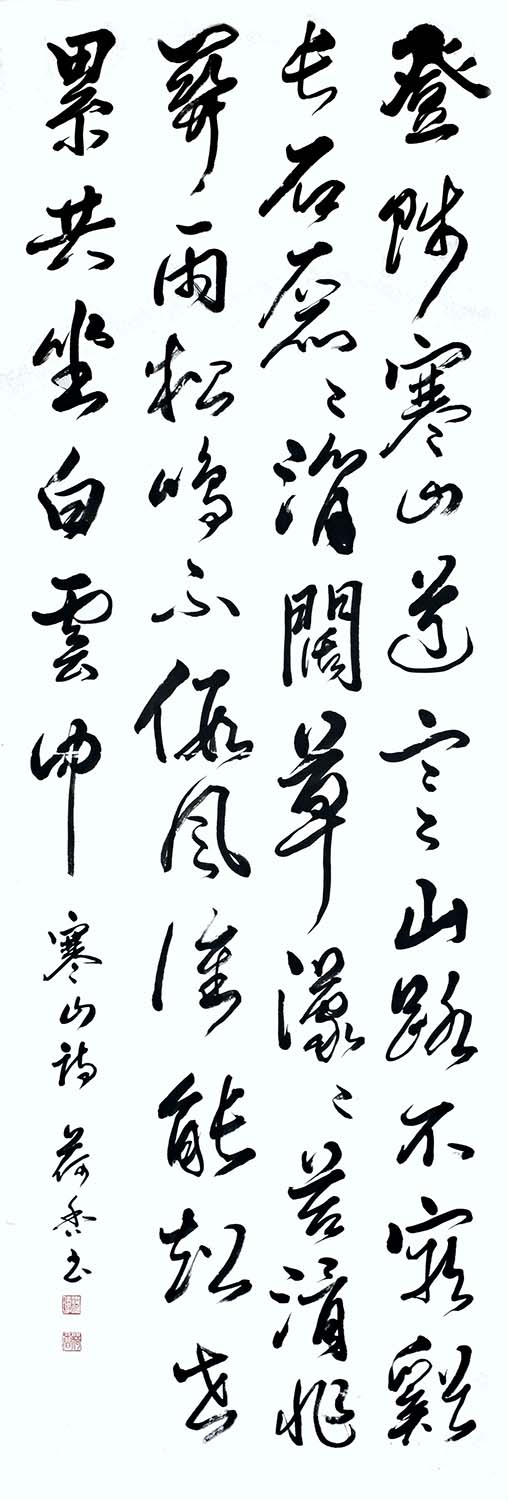 登陟寒山道寒山路不窮谿
長石磊〻澗闊草濛〻苔滑非
關雨松鳴不假風誰能超世
累共坐白雲中 寒山詩 荷香書